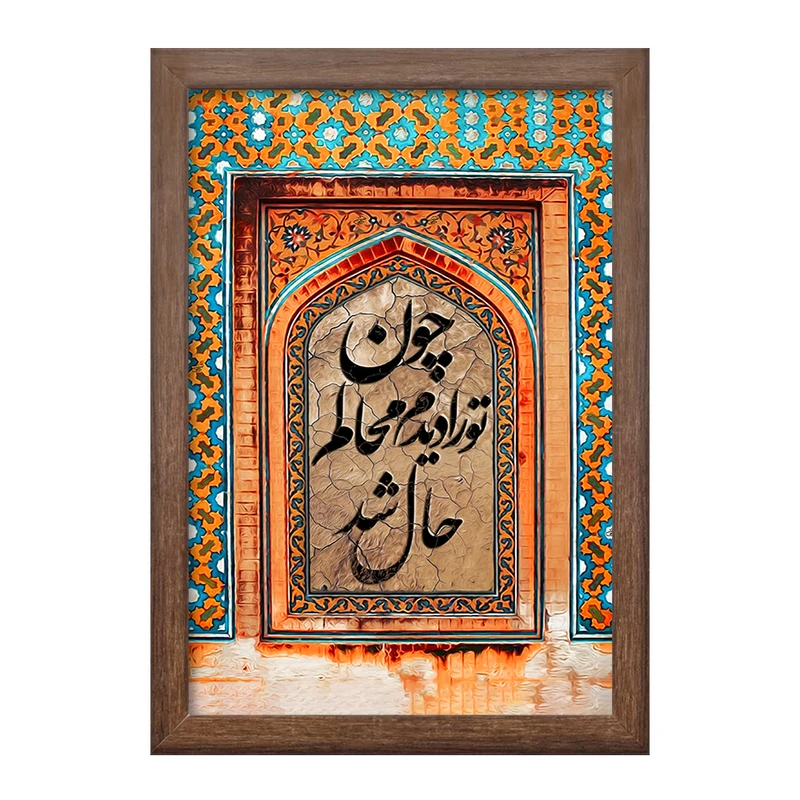 چون
تو را دیدم محالم
حال شد